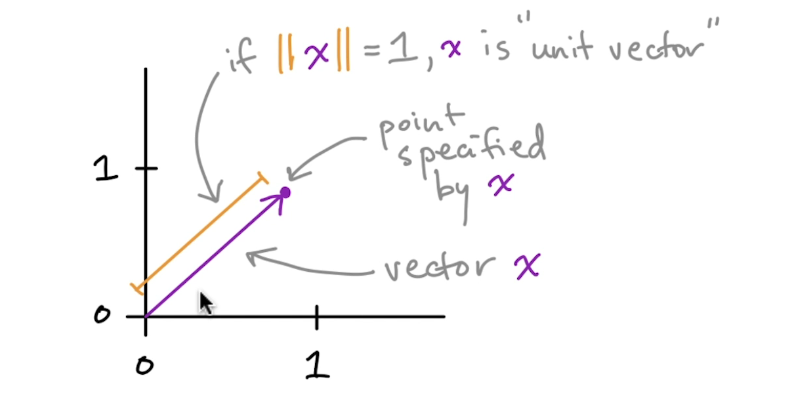 if ||x|| = 1, x is "unit vector"
point
specified
by x
1
vector x
0
0
1